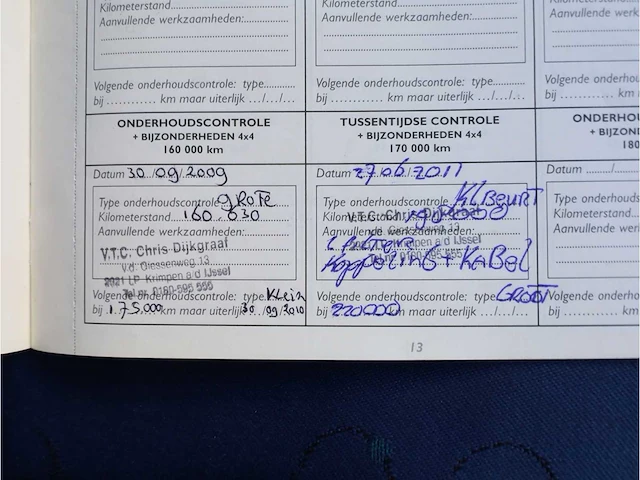 Kilometerstand
Aanvullende werkzaamheden:
Volgende onderhoudscontrole: type
bij ............ km maar uiterlijk .../.../...
ONDERHOUDSCONTROLE
+ BIJZONDERHEDEN 4x4
160 000 km
Datum 30/09/2009
Type onderhoudscontrole gROTE
Kilometerstand 160.630
Aanvullende werkzaamheden:
V.T.C. Chris Dijkgraaf
v.d. Giessenweg 13
2921 LP Krimpen a/d IJssel
Tel.nr. 0180-595 555
Volgende onderhoudscontrole: type Klein
bij 175.000 km maar uiterlijk 30/09/2010
Kilometerstand
Aanvullende werkzaamheden:
Volgende onderhoudscontrole: type
bij ............ km maar uiterlijk .../.../...
TUSSENTIJDSE CONTROLE
+ BIJZONDERHEDEN 4x4
170 000 km
Datum 27/06/2011
Type onderhoudscontrole KL BEURT
Kilometerstand
V.T.C. Chris Dijkgraaf
Aanvullende werkzaamheden:
Giessenweg 13
Krimpen a/d IJssel
KOPPELING + KABEL
Volgende onderhoudscontrole: type GROOT
bij 220000 km maar uiterlijk .../.../...
Kilometer
Aanvullend
Volgende on
bij
ONDERHOU
+ BIJZON
180
Datum
Type onderh
Kilometerst
Aanvullende
Volgende on
bij
13